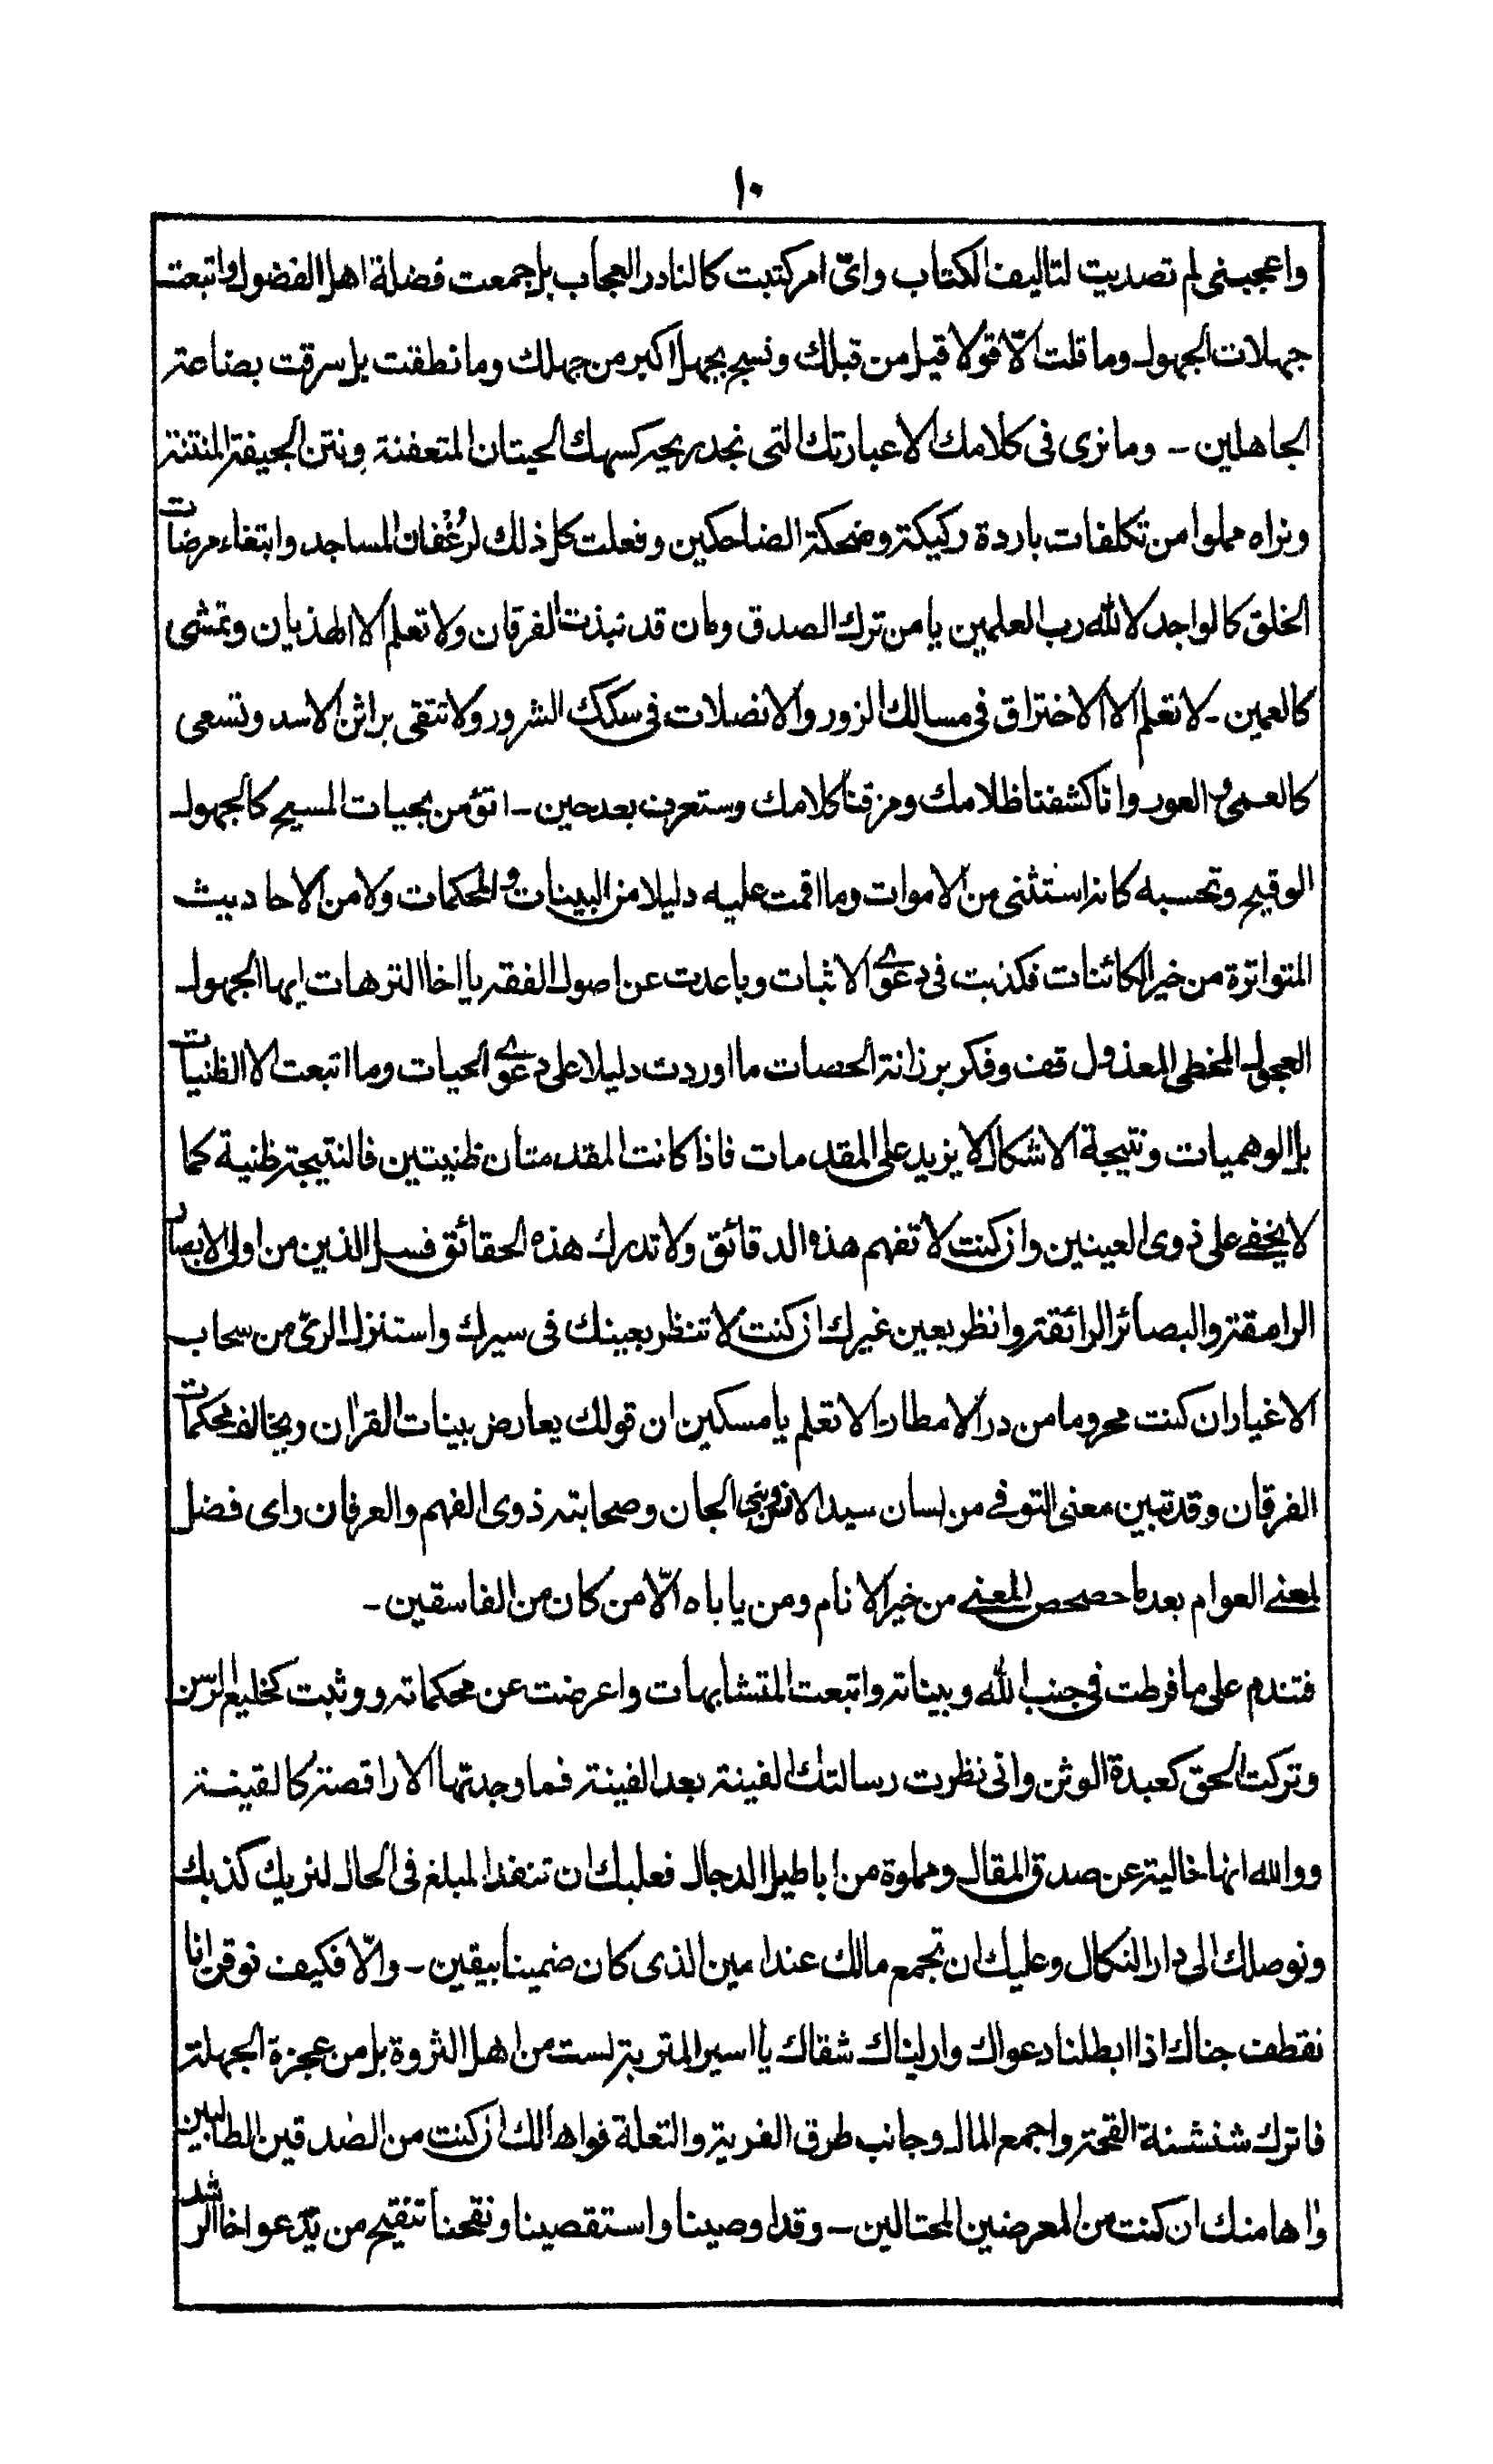 ١٠
واعجبنی لم تصدیت لتالیف الکتاب وایّ امر کتبت کالنادر العجاب بل جمعت فضلة اهل الفضول واتبعت
جهلات الجهول وما قلت الّا قولا قیل من قبلك ونسج بجهل اکبر من جهلك وما نطقت بل سرقت بضاعة
الجاهلین ـ وما نری فی کلامك الا عبارتك التی نجد ریحه کسهك الحیتان المتعفنة ونتن الجیفة المنتنة
ونراه مملوا من تکلفات باردة رکیکة وضحکة الضاحکین وفعلت کل ذلك لرُغْفان المساجد وابتغاء مرضات
الخلق کالواجد لا لله رب العلمین یا من ترك الصدق ومان قد نبذت الفرقان ولا تعلم الا الهذیان وتمشی
کالعمین ـ لا تعلم الا الاختراق فی مسالك الزور والانصلات فی سکك الشرور ولا تتقی براثن الاسد وتسعی
کالعمی والعور وانا کشفنا ظلامك ومزقنا کلامك وستعرف بعد حین ـ اتؤمن بحیات المسیح کالجهول
الوقیح وتحسبه کانه استثنی من الاموات وما اقمت علیه دلیلا من البینات والمحکمات ولا من الاحادیث
المتواترة من خیر الکائنات فکذبت فی دعوی الاثبات وباعدت عن اصول الفقه یا اخا الترهات ایها الجهول
العجول المخطی المعذول قف وفکر برزانة الحصات ما اوردت دلیلا علی دعوی الحیات وما اتبعت الا الظنیات
بل الوهمیات ونتیجة الاشکال لا یزید علی المقدمات فاذا کانت المقدمتان ظنیتین فالنتیجة ظنیة کما
لا یخفی علی ذوی العینین وان کنت لا تفهم هذه الدقائق ولا تدرك هذه الحقائق فسل الذین من اولی الابصار
الرامقة والبصائر الرائقة وانظر بعین غیرك ان کنت لا تنظر بعینك فی سیرك واستنزل الریّ من سحاب
الاغیار ان کنت محروما من در الامطار الا تعلم یا مسکین ان قولك یعارض بینات القرٰان ویخالف محکمات
الفرقان وقد تبین معنی التوفی من لسان سید الانس ونبی الجان وصحابته ذوی الفهم والعرفان وای فضل
لمعنی العوام بعد ما حصحص المعنی من خیر الانام ومن یاباه الّا من کان من الفاسقین ـ
فتندم علی ما فرطت فی جنب الله وبیناته واتبعت المتشابهات واعرضت عن محکماته ووثبت کخلیع الرّسن
وترکت الحق کعبدة الوثن وانی نظرت رسالتك الفینة بعد الفینة فما وجدتها الا راقصة کالقینة
ووالله انها خالیة عن صدق المقال ومملوة من اباطیل الدجال فعلیك ان تنفذ المبلغ فی الحال لنریك کذبك
ونوصلك الی دار النکال وعلیك ان تجمع مالك عند امین الذی کان ضمینا بیقین ـ والّا فکیف نوقن انا
نقطف جناك اذا ابطلنا دعواك واریناك شقاك یا اسیر المتربة لست من اهل الثروة بل من عجزة الجهلة
فاترك شنشنة القحة واجمع المال وجانب طرق الفریة والتعلة فواها لك ان کنت من الصٰدقین الطالبین
واٰها منك ان کنت من المعرضین المحتالین ـ وقد اوصینا واستقصینا ونقحنا تنقیح من یّدعو اخا الرشد